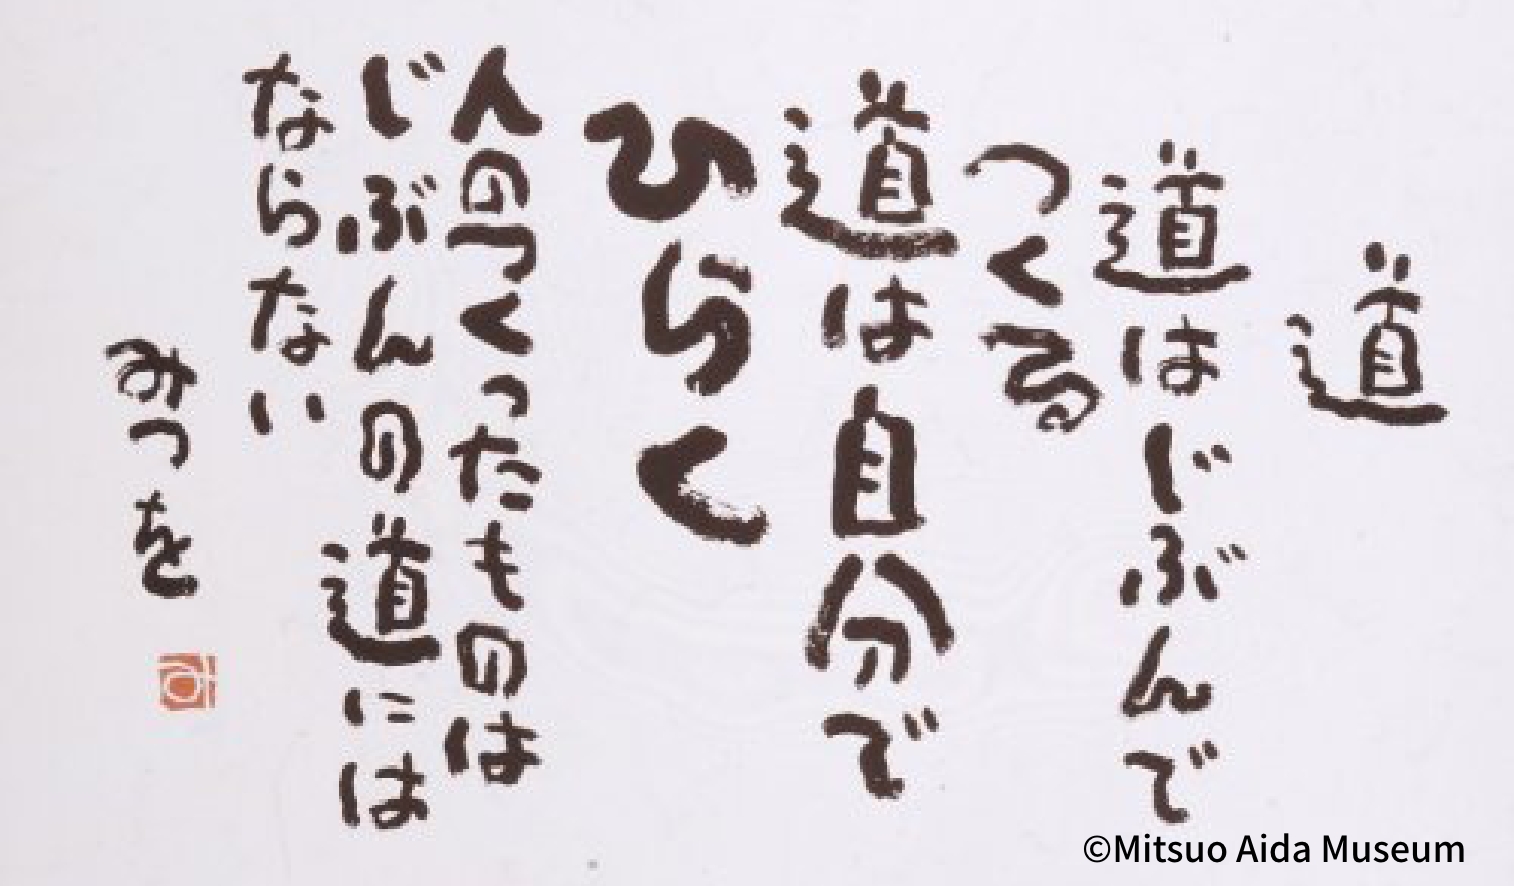 道
道はじぶんで
つくる
道は自分で
ひらく
人のつくったものは
じぶんの道には
ならない
みつを
©Mitsuo Aida Museum